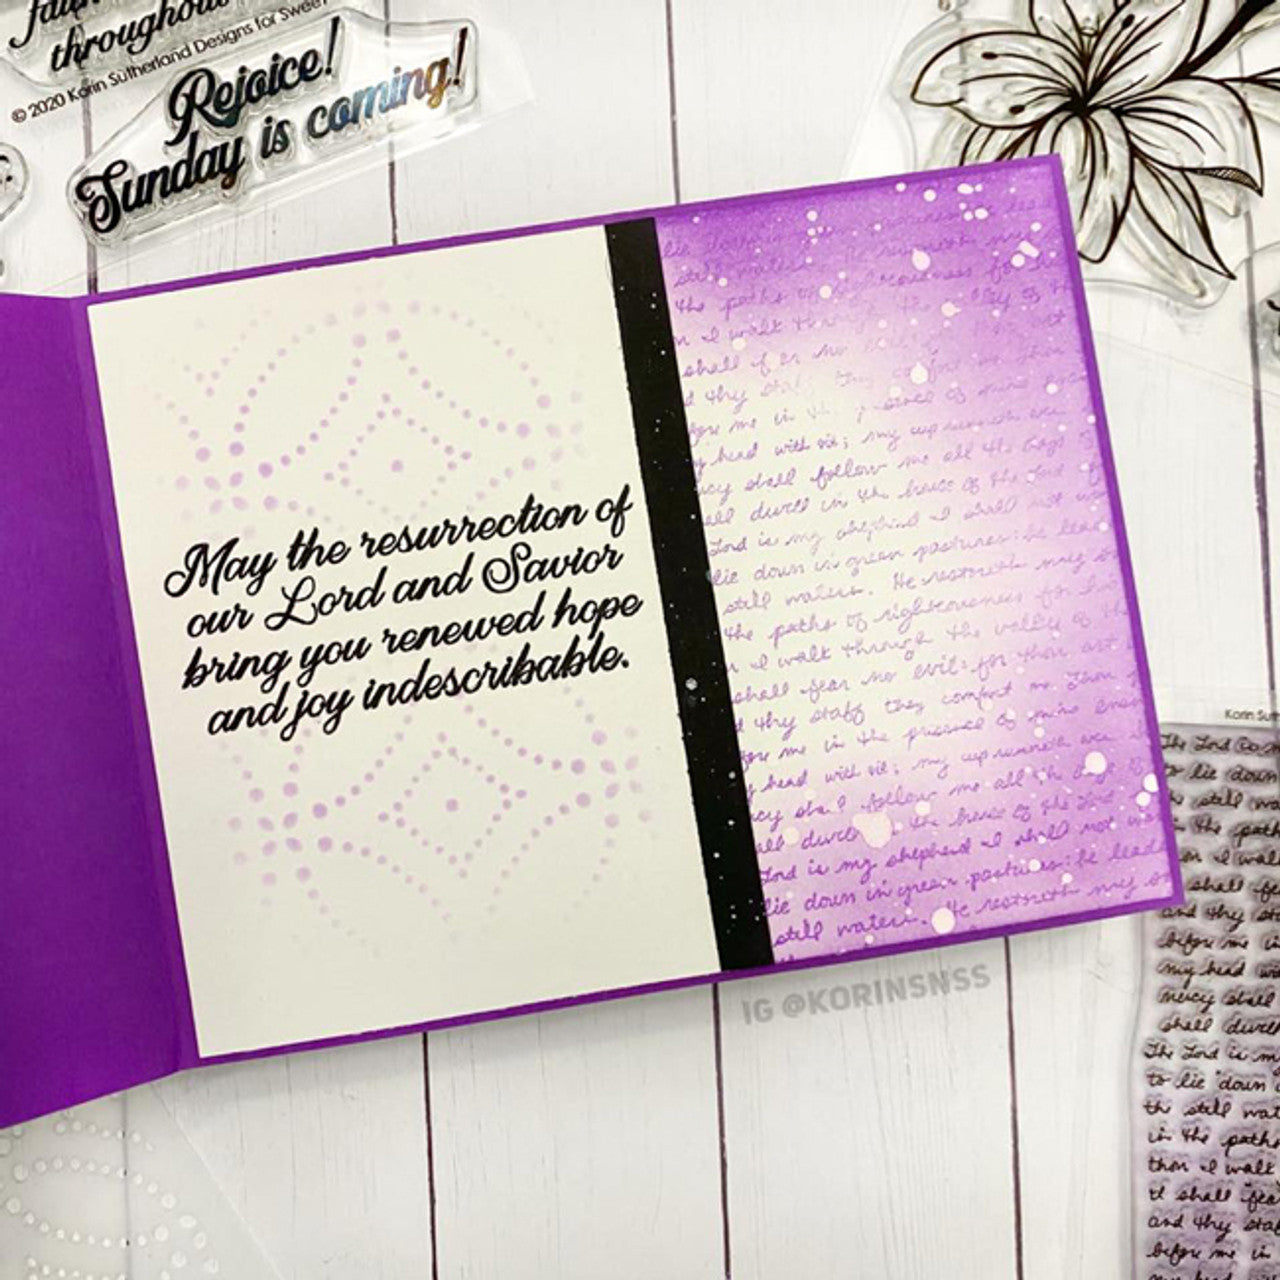 throughout
© 2020 Korin Sutherland Designs for Sweet
Rejoice!
Sunday is coming!
May the resurrection of
our Lord and Savior
bring you renewed hope
and joy indescribable.
still waters. He restoreth my
the paths of righteousness for
n I walk through the valley of the
shall
d thy staff they comfort me
fore me in the presence of mine
head with oil; my cup runneth over
rcy shall follow me all the days of
all dwell in the house of the Lord
Lord is my shepherd I shall not wa
lie down in green pastures: he lead
still waters. He restoreth my so
the paths of righteousness for his
n I walk through the valley of the
shall fear no evil: for thou art
d thy staff they comfort me Thou
fore me in the presence of mine enem
head with oil; my cup runneth over
rcy shall follow me all the days of
all dwell in the house of the Lord
Lord is my shepherd I shall not wa
lie down in green pastures: he lead
still waters. He restoreth my so
IG @KORINSNSS
Korin Su
The Lord
to lie down
still wat
in the path
shall fe
and thy sta
before me in
my head wi
mercy shall
shall dwell
The Lord is my
to lie down
the still wat
in the paths
thou I walk
I shall fear
and thy sta
before me in